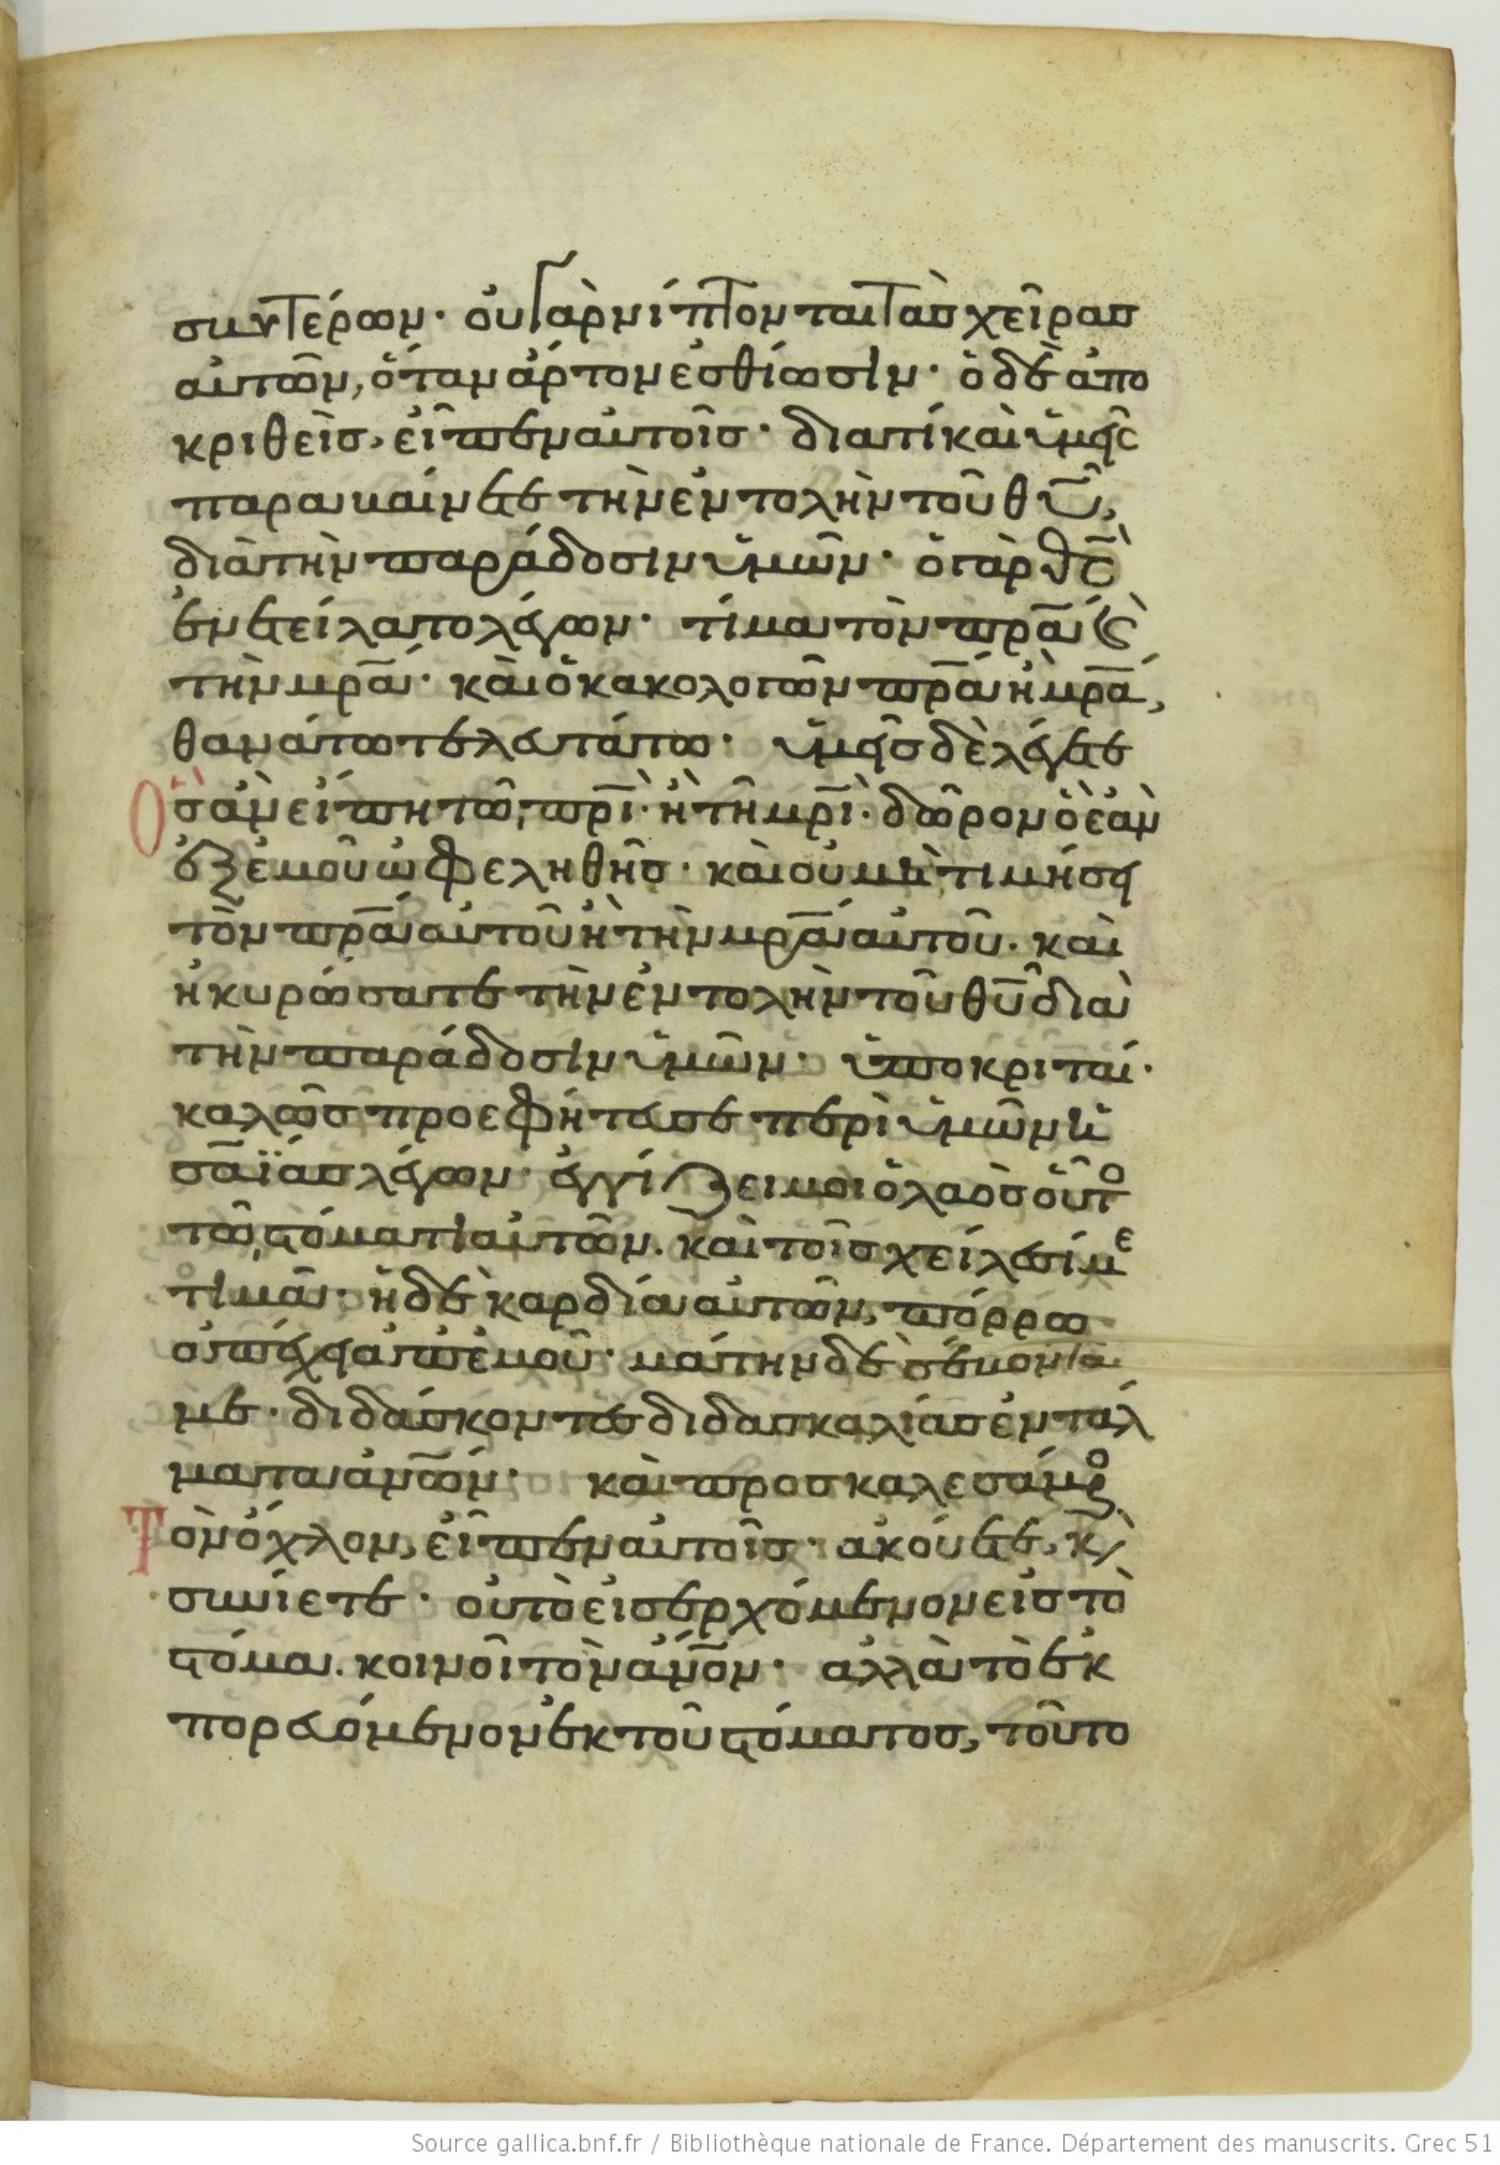 συντέρων· οὐ γὰρ νίπτονται τὰς χεῖρας
αὐτῶν, ὅταν ἄρτον ἐσθίωσιν· ὁ δὲ ἀπο
κριθεὶς, εἶπεν αὐτοῖς· διατί καὶ ὑμεῖς
παραβαίνετε τὴν ἐντολὴν τοῦ θῦ,
διὰ τὴν παράδοσιν ὑμῶν· ὁ γὰρ θς
ἐνετείλατο λέγων· τίμα τὸν πρα καὶ
τὴν μρα· καὶ ὁ κακολογῶν πρα ἢ μρα,
θανάτω τελευτάτω· ὑμεῖς δὲ λέγετε
Ὃς ἂν εἴπη τῶ, πρι· ἢ τῆ μρι· δῶρον ὃ ἐὰν
ἐξ ἐμοῦ ὠφεληθῆς· καὶ οὐ μὴ τιμήσει
τὸν πρα αὐτοῦ ἢ τὴν μρα αὐτοῦ. καὶ
ἠκυρώσατε τὴν ἐντολὴν τοῦ θῦ διὰ
τὴν παράδοσιν ὑμῶν· ὑποκριταί·
καλῶς προεφήτευσε περὶ ὑμῶν ἡ
σαΐας λέγων· ἐγγίζει μοι ὁ λαὸς οὗτο
τῶ, στόματι αὐτῶν. καὶ τοῖς χείλεσί με
τιμᾶ· ἡ δὲ καρδία αὐτῶν, πόρρω
ἀπέχει ἀπ' ἐμοῦ· μάτην δὲ σέβονταί
με· διδάσκοντες διδασκαλίας ἐντάλ
ματα ἀνων· καὶ προσκαλεσάμενος
Τὸν ὄχλον, εἶπεν αὐτοῖς· ἀκούετε, κ
συνίετε· οὐ τὸ εἰσερχόμενον εἰς τὸ
στόμα. κοινοῖ τὸν ἄνον· ἀλλὰ τὸ ἐκ
πορευόμενον ἐκ τοῦ στόματος, τοῦτο
Source gallica.bnf.fr / Bibliothèque nationale de France. Département des manuscrits. Grec 51